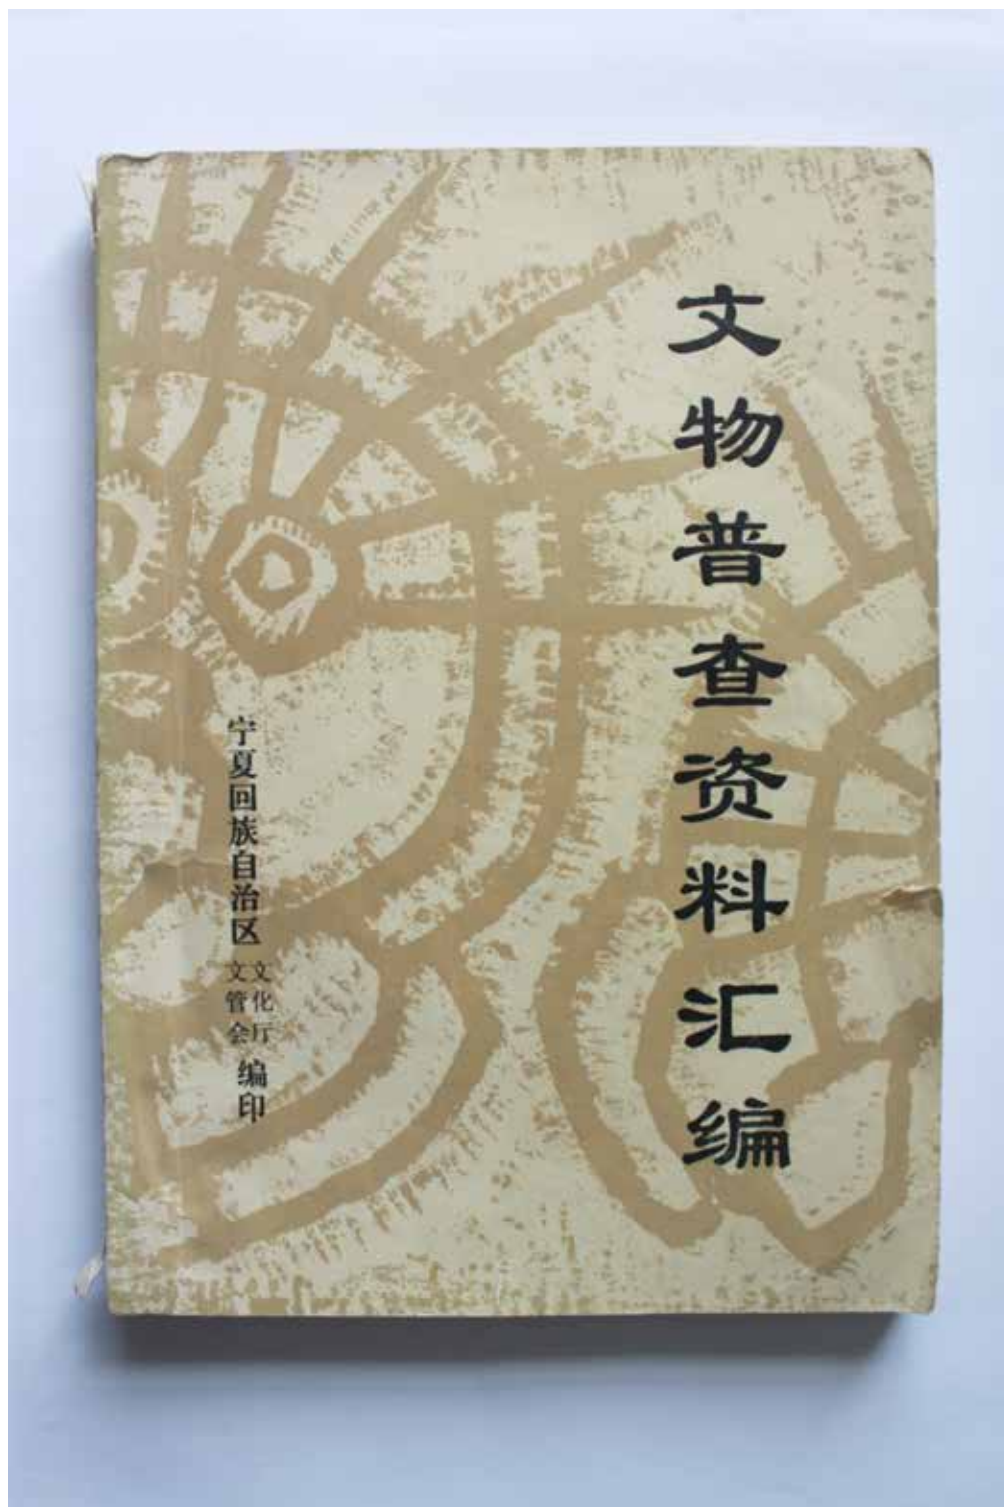 文物普查资料汇编
宁夏回族自治区
文化厅
文管会
编印